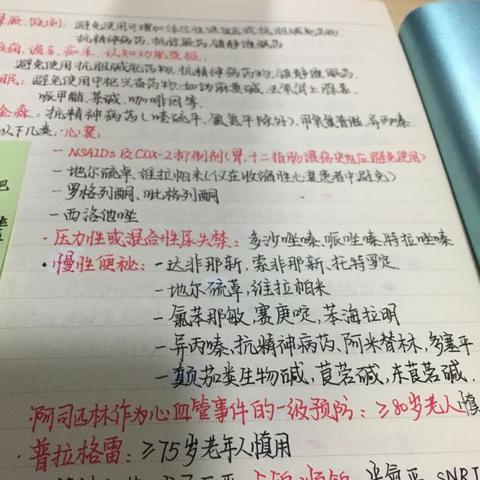 晕厥、跌倒: 避免使用可增加体位性低血压或抗胆碱能药物
抗精神病药、抗惊厥药、镇静催眠药
谵妄、痴呆、认知功能受损
避免使用抗胆碱能药物、抗精神病药物、镇静催眠药
失眠: 避免使用中枢兴奋药物: 如伪麻黄碱、去氧肾上腺素
哌甲酯、茶碱、咖啡因等
帕金森: 抗精神病药(喹硫平、氯氮平除外), 甲氧氯普胺、异丙嗪
以下几类: 心衰
- NSAIDs及COX-2抑制剂(胃、十二指肠溃疡史应避免使用)
- 地尔硫䓬、维拉帕米(仅在收缩性心衰患者中避免)
- 罗格列酮、吡格列酮
- 西洛他唑
· 压力性或混合性尿失禁: 多沙唑嗪、哌唑嗪、特拉唑嗪
· 慢性便秘: - 达非那新, 索非那新、托特罗定
- 地尔硫䓬, 维拉帕米
- 氯苯那敏, 赛庚啶, 苯海拉明
- 异丙嗪、抗精神病药、阿米替林, 多塞平
- 颠茄类生物碱, 莨菪碱, 东莨菪碱.
阿司匹林作为心血管事件的一级预防: ≥80岁老人慎
· 普拉格雷: ≥75岁老年人慎用
SNRI